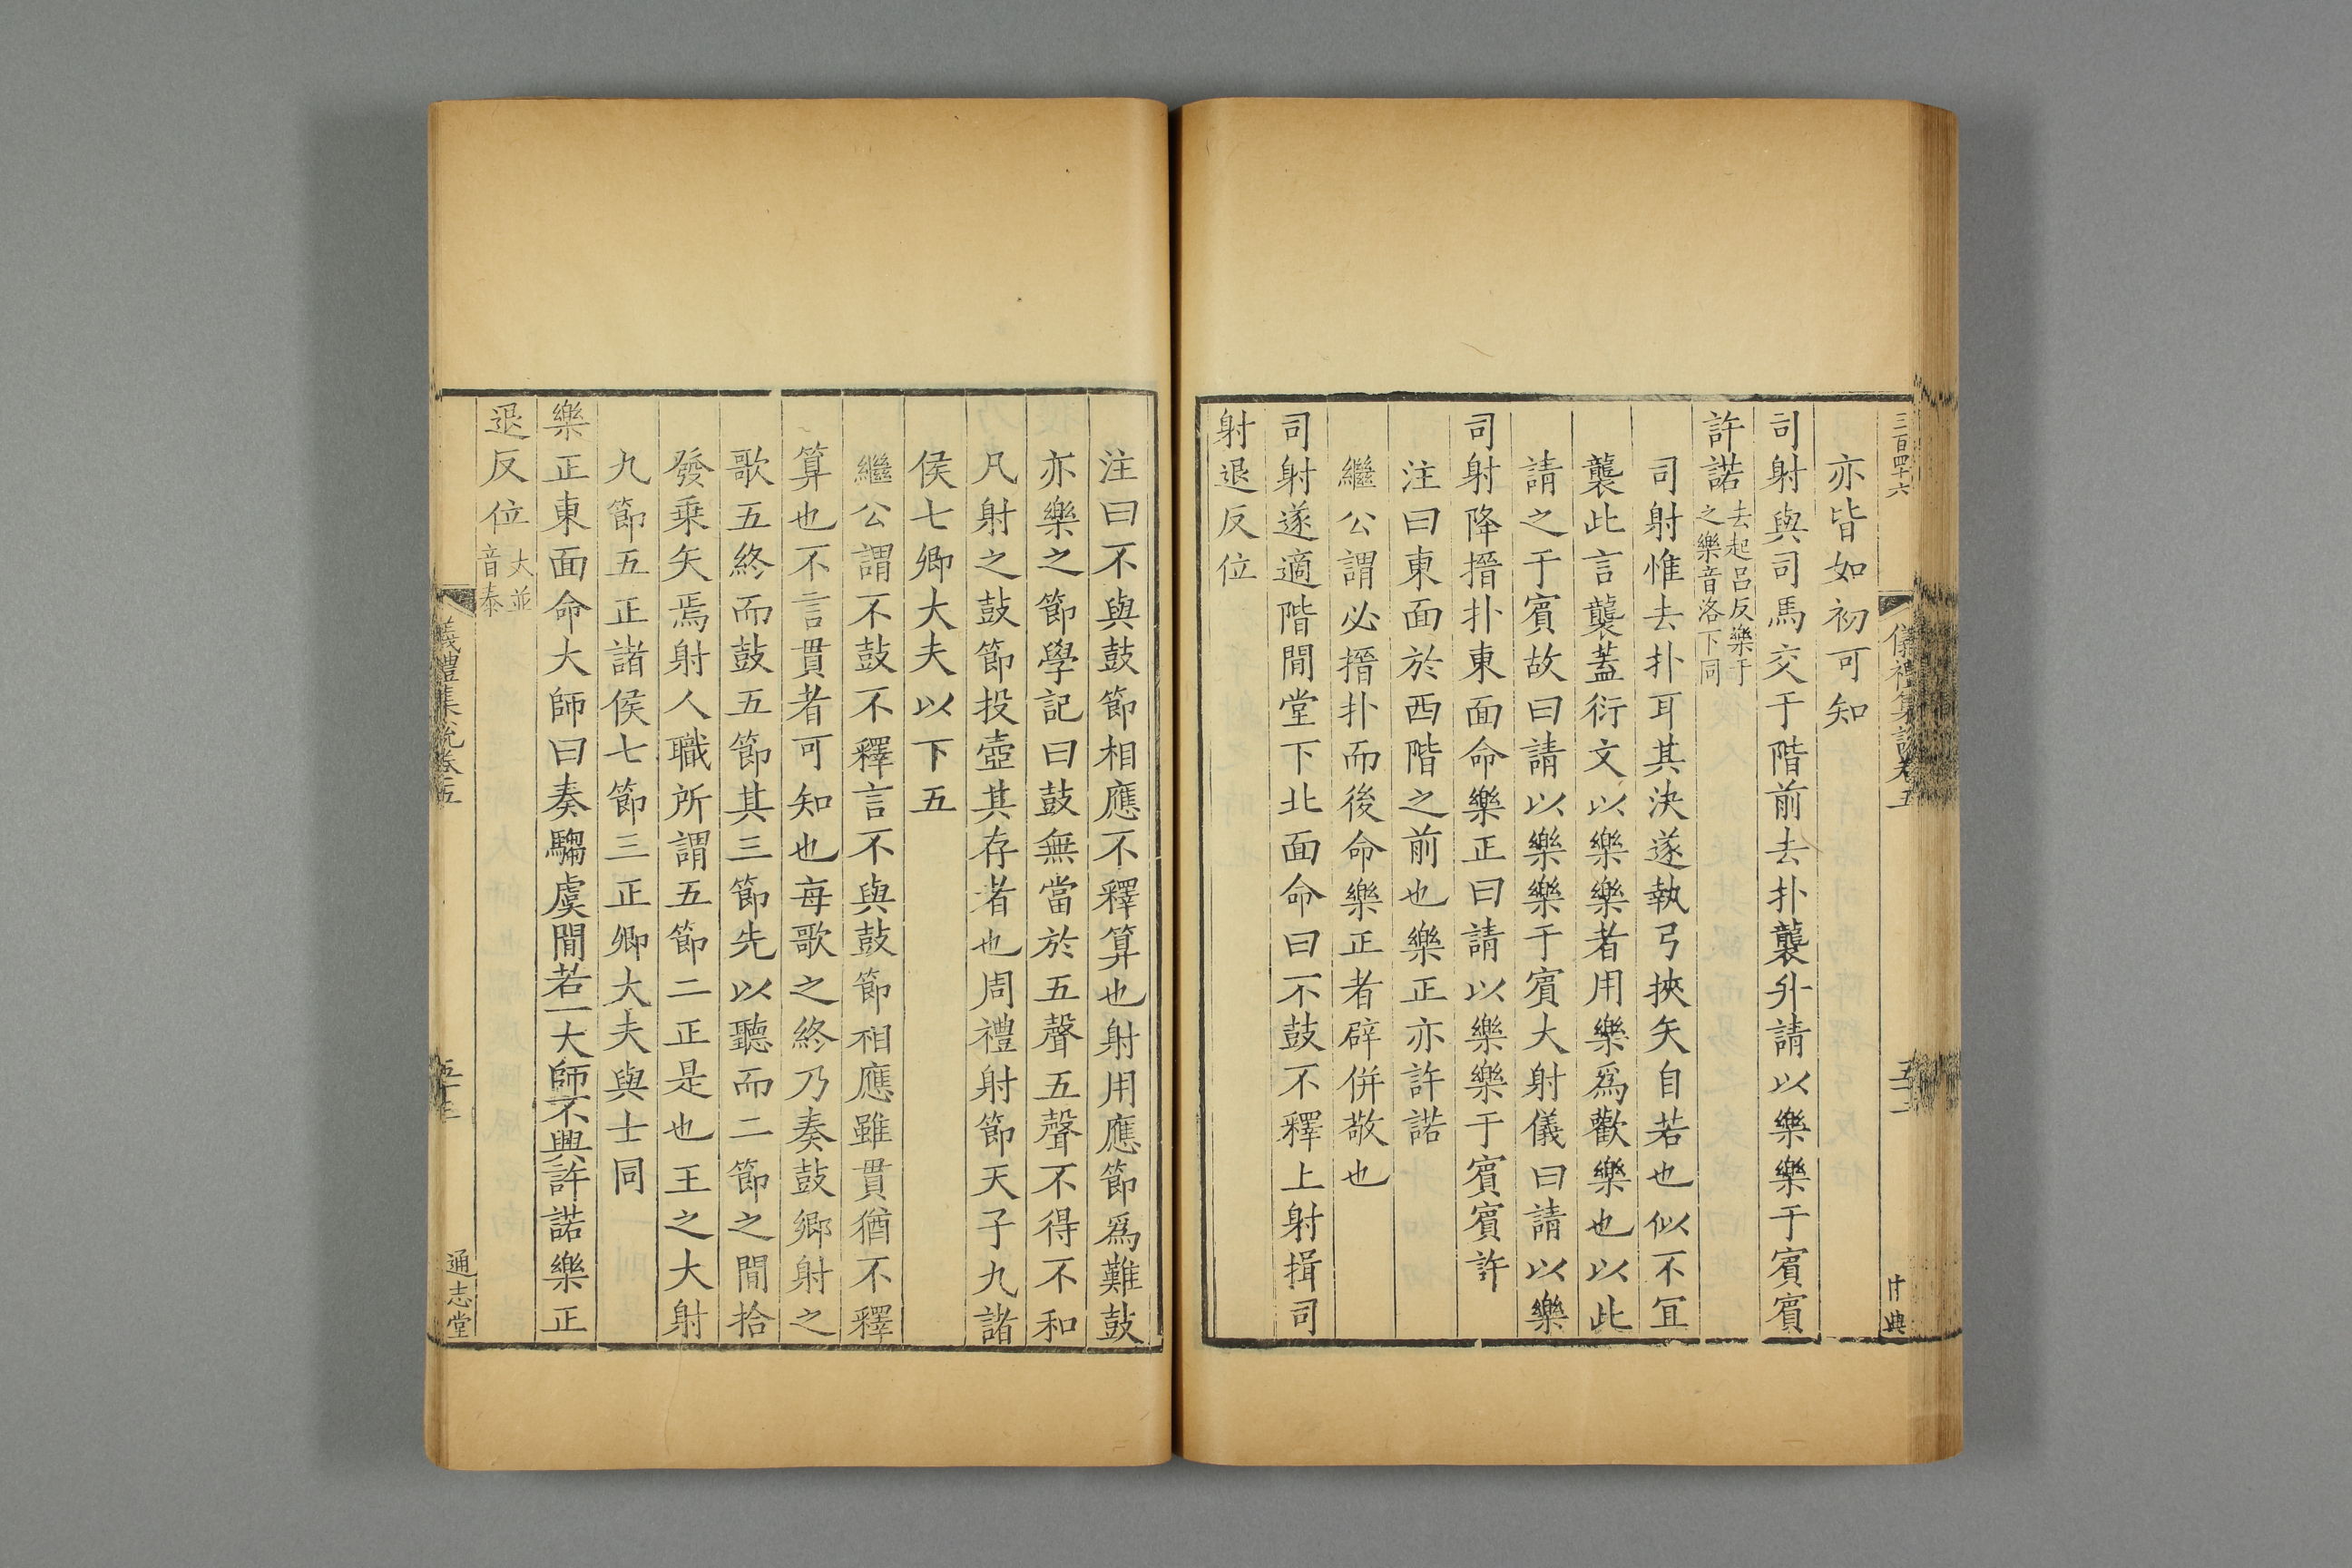 三百四十六
儀禮集說卷五
亦皆如初可知
司射與司馬交于階前去扑襲升請以樂樂于賓賓
許諾去起呂反樂于之樂音洛下同
司射惟去扑耳其決遂執弓挾矢自若也似不宜
襲此言襲蓋衍文以樂樂者用樂爲歡樂也以此
請之于賓故曰請以樂樂于賓大射儀曰請以樂
司射降搢扑東面命樂正曰請以樂樂于賓賓許
注曰東面於西階之前也樂正亦許諾
繼公謂必搢扑而後命樂正者辟併敬也
司射遂適階間堂下北面命曰不鼓不釋上射揖司
射退反位
注曰不與鼓節相應不釋算也射用應節爲難鼓
亦樂之節學記曰鼓無當於五聲五聲不得不和
凡射之鼓節投壺其存者也周禮射節天子九諸
侯七卿大夫以下五
繼公謂不鼓不釋言不與鼓節相應雖貫猶不釋
算也不言貫者可知也每歌之終乃奏鼓鄉射之
歌五終而鼓五節其三節先以聽而二節之間拾
發乘矢焉射人職所謂五節二正是也王之大射
九節五正諸侯七節三正卿大夫與士同
樂正東面命大師曰奏騶虞間若一大師不興許諾樂正
退反位大並音泰
儀禮集說卷五
通志堂